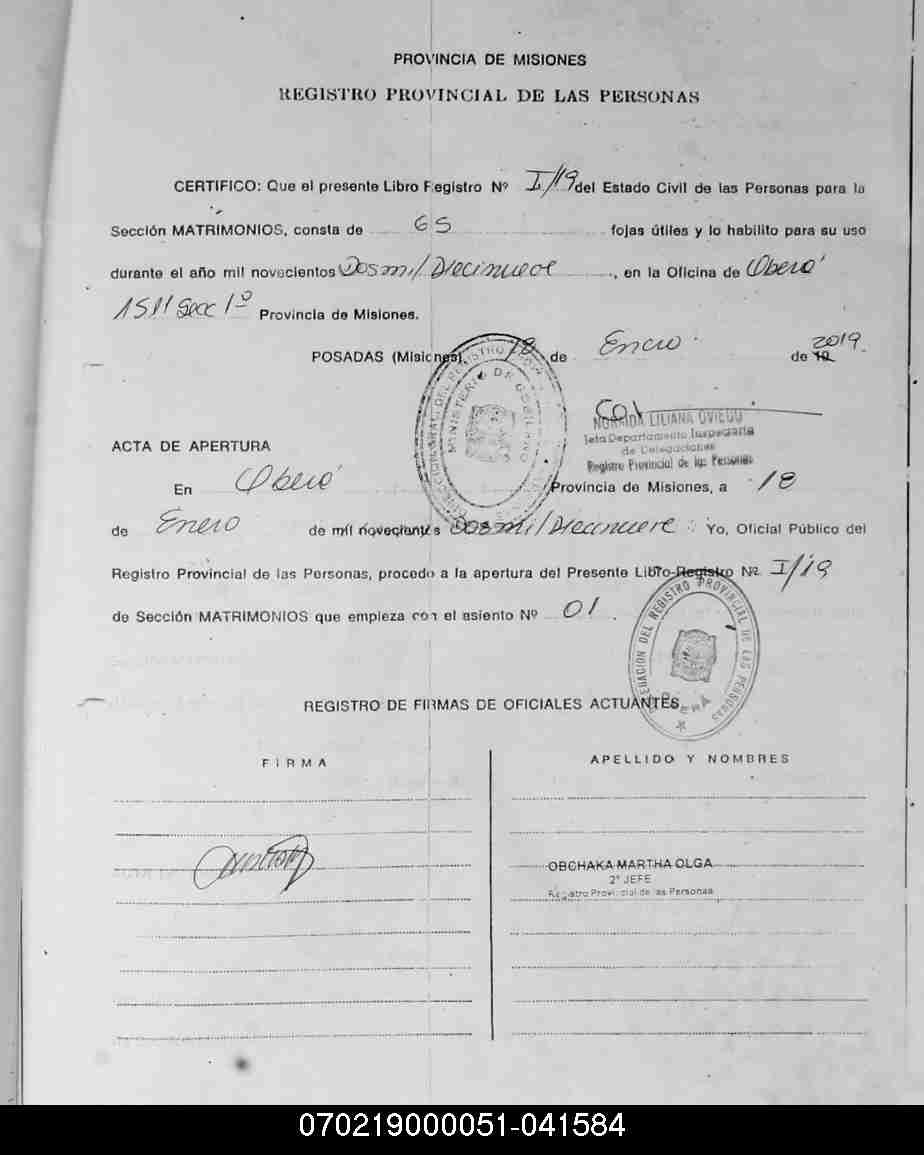 PROVINCIA DE MISIONES
REGISTRO PROVINCIAL DE LAS PERSONAS
CERTIFICO: Que el presente Libro Registro Nº I/19 del Estado Civil de las Personas para la
Sección MATRIMONIOS, consta de 65 fojas útiles y lo habilito para su uso
durante el año mil novecientos Dos mil Diecinueve, en la Oficina de Oberá
1511 Secc 1º Provincia de Misiones.
POSADAS (Misiones), 18 de Enero de 19 2019.
NORAIDA LILIANA OVIEDO
Jefa Departamento Inspectoría
de Delegaciones
Registro Provincial de las Personas
ACTA DE APERTURA
En Oberá Provincia de Misiones, a 18
de Enero de mil novecientos Dos mil Diecinueve. Yo, Oficial Público del
Registro Provincial de las Personas, procedo a la apertura del Presente Libro-Registro Nº I/19
de Sección MATRIMONIOS que empieza con el asiento Nº 01.
DELEGACION DEL REGISTRO PROVINCIAL DE LAS PERSONAS
OBERÁ
REGISTRO DE FIRMAS DE OFICIALES ACTUANTES
FIRMA APELLIDO Y NOMBRES
OBCHAKA MARTHA OLGA
2º JEFE
Registro Provincial de las Personas
070219000051-041584